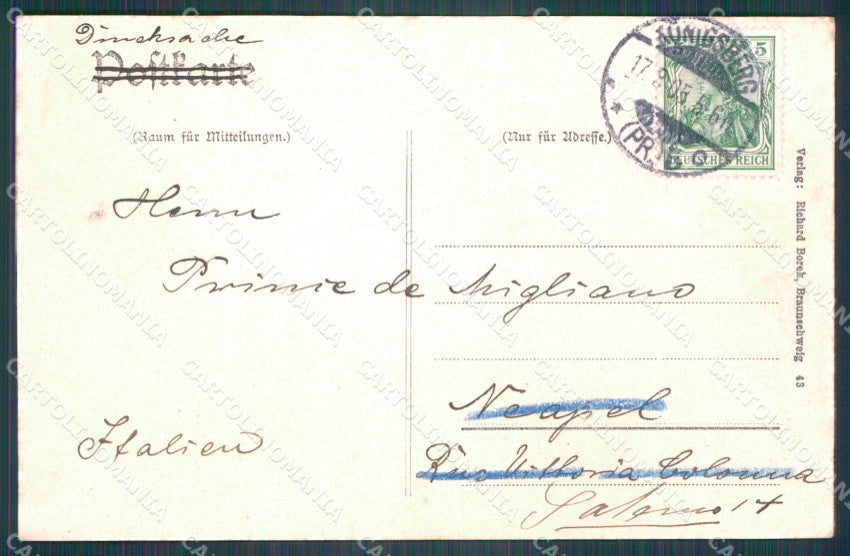 Drucksache
Postkarte
(Raum für Mitteilungen.)
(Nur für Adresse.)
KÖNIGSBERG
17.8.05
(PR.)
5
DEUTSCHES REICH
Herrn
Prince de Migliano
Neapel
Vittoria Colonna
Salerno
Italien
Verlag: Richard Borek, Braunschweig 43
CARTOLINOMANIA